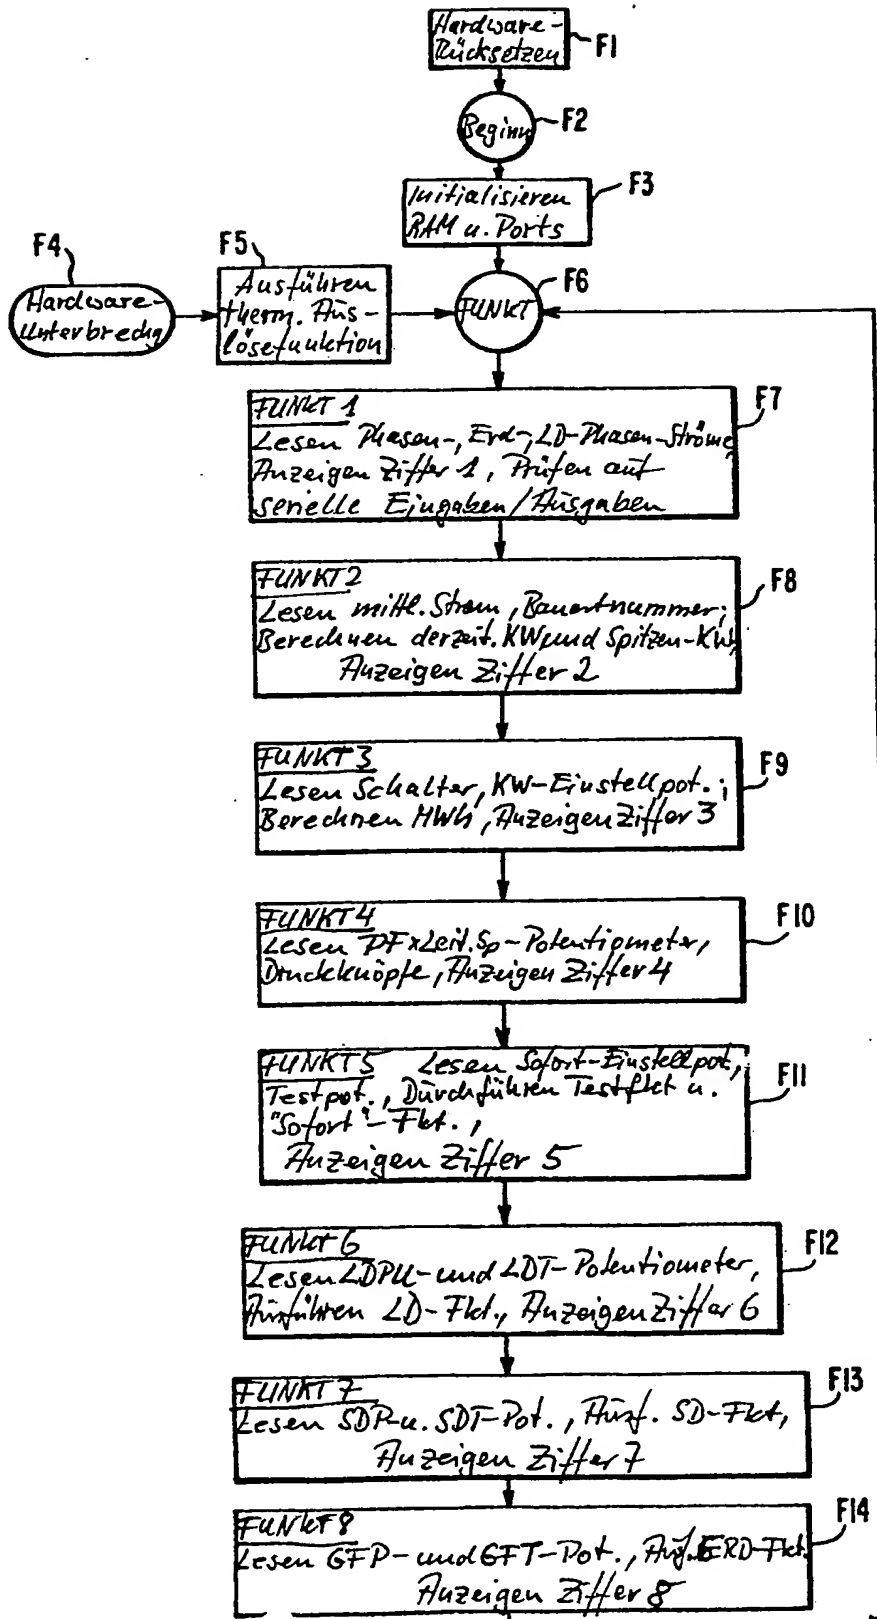 Hardware-
Rücksetzen
F1
Beginn
F2
Initialisieren
RAM u. Ports
F3
F4
Hardware-
Unterbrechg
F5
Ausführen
therm. Aus-
lösefunktion
FUNKT
F6
FUNKT 1
Lesen Phasen-, Erd-, LD-Phasen-Ströme,
Anzeigen Ziffer 1, Prüfen auf
serielle Eingaben/Ausgaben
F7
FUNKT 2
Lesen mittl. Strom, Bauartnummer;
Berechnen derzeit. KW und Spitzen-KW,
Anzeigen Ziffer 2
F8
FUNKT 3
Lesen Schalter, KW-Einstellpot.;
Berechnen MWh, Anzeigen Ziffer 3
F9
FUNKT 4
Lesen PFxLeit.Sp-Potentiometer,
Druckknöpfe, Anzeigen Ziffer 4
F10
FUNKT 5 Lesen Sofort-Einstellpot.,
Testpot., Durchführen Testfkt u.
"Sofort"-Fkt.,
Anzeigen Ziffer 5
F11
FUNKT 6
Lesen LDPU- und LDT-Potentiometer,
Ausführen LD-Fkt., Anzeigen Ziffer 6
F12
FUNKT 7
Lesen SDP- u. SDT-Pot., Ausf. SD-Fkt,
Anzeigen Ziffer 7
F13
FUNKT 8
Lesen GFP- und GFT-Pot., Ausf. ERD-Fkt.
Anzeigen Ziffer 8
F14